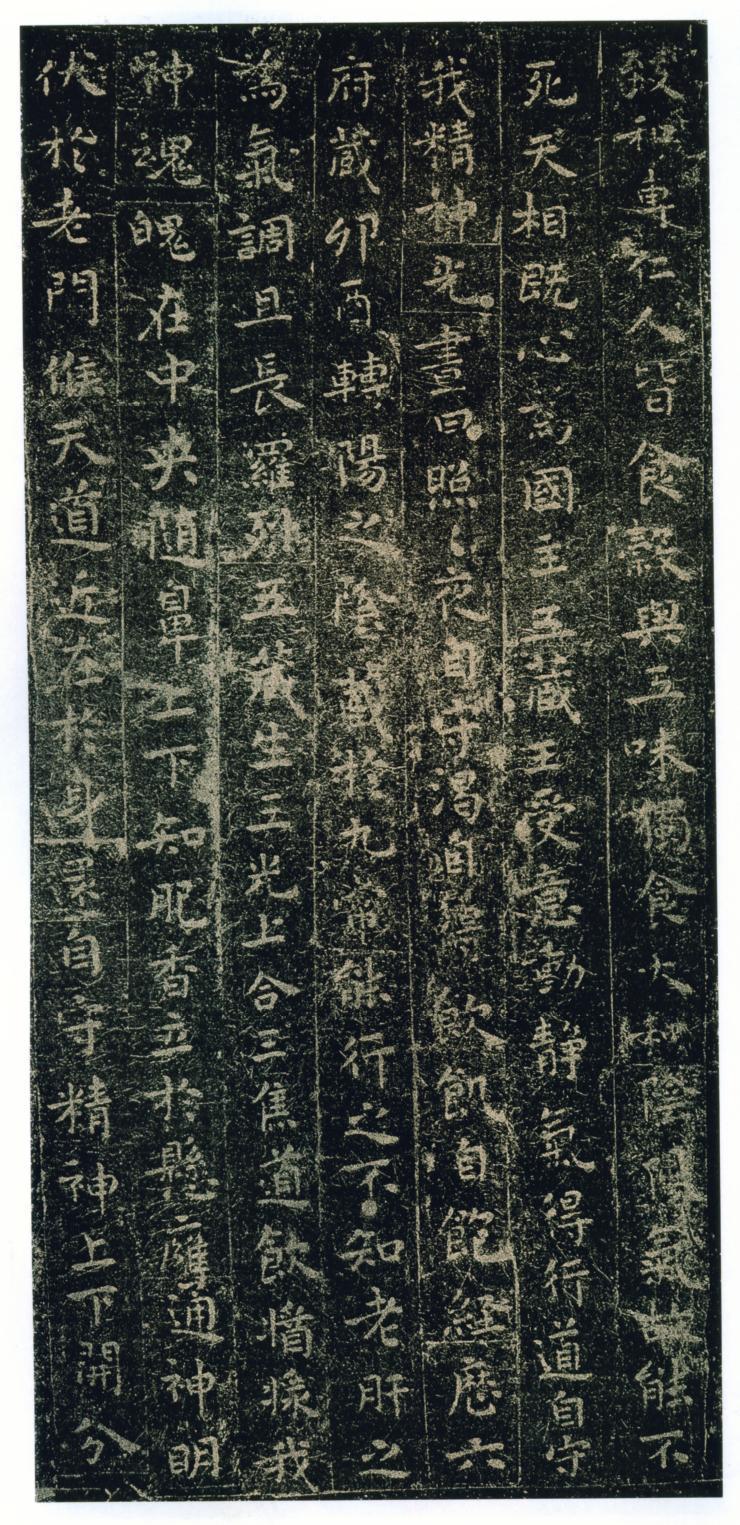 致和專仁人皆食穀與五味獨食大和陰陽氣故能不
死天相既心為國主五藏王受意動靜氣得行道自守
我精神光晝日照〻夜自守渴自得飲飢自飽經歷六
府藏卯酉轉陽之陰藏於九常能行之不知老肝之
為氣調且長羅列五藏生三光上合三焦道飲漿我
神魂魄在中央隨鼻上下知肥香立於懸膺通神明
伏於老門候天道近在於身還自守精神上下開分